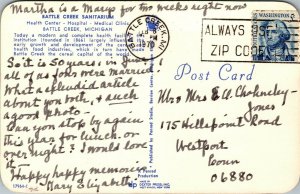 Martha is a Mary for two weeks right now
BATTLE CREEK SANITARIUM
Health Center - Hospital - Medical Clinic
BATTLE CREEK, MICHIGAN
Today a modern and complete health
institution founded in 1861 largely
early growth and development of the
health food industries which in
Battle Creek the cereal capital of the
BATTLE CREEK, MI
1970
ALWAYS USE
ZIP CODE
Post Card
So it is 50 years, in
all of us four were married
What a splendid article
about you both, & such
a good photo.
Can you stop by again
this year for lunch or
over night? I would love
it.
Happy happy memories
Mary Elizabeth
Mr & Mrs E. A.
Jones
175 Hillspoint Road
Westport
Conn
06880